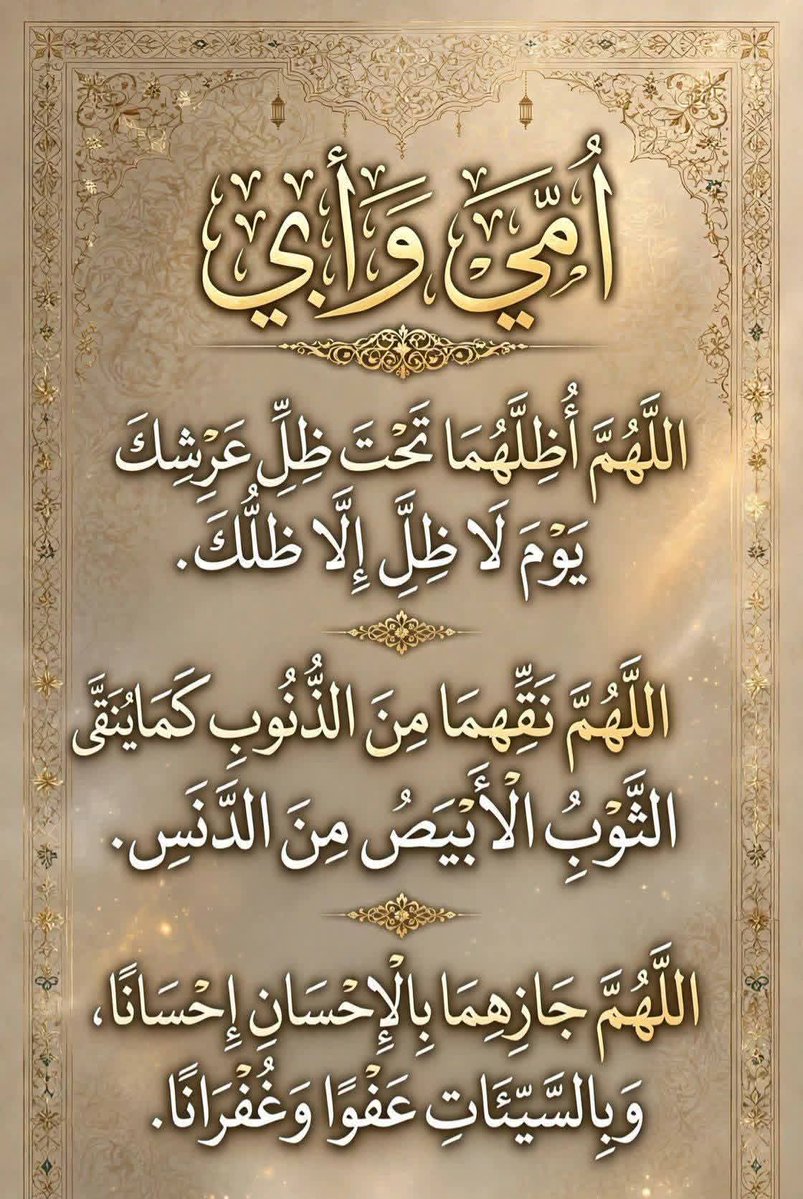 أُمِّيَ وَأَبي
اللَّهُمَّ أُظِلَّهُمَا تَحْتَ ظِلِّ عَرْشِكَ
يَوْمَ لَا ظِلَّ إِلَّا ظلُّكَ.
اللَّهُمَّ نَقِّهِمَا مِنَ الذُّنُوبِ كَمَا يُنَقَّى
الثَّوْبُ الْأَبْيَصُ مِنَ الدَّنَسِ.
اللَّهُمَّ جَازِهِمَا بِالْإِحْسَانِ إِحْسَانًا،
وَبِالسَّيِّئَاتِ عَفْوًا وَغُفْرَانًا.